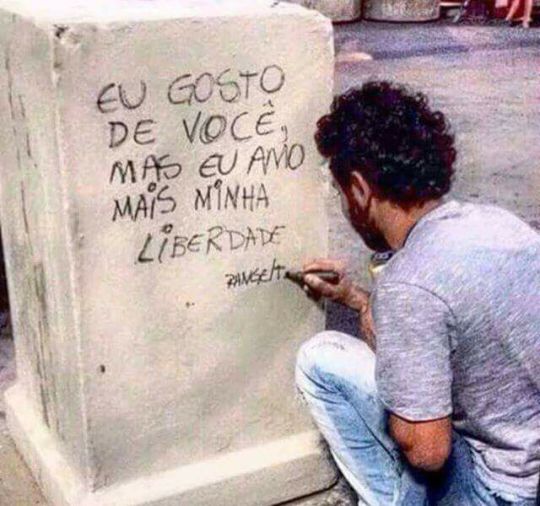 EU GOSTO
DE VOCÊ,
MAS EU AMO
MAIS MINHA
LIBERDADE